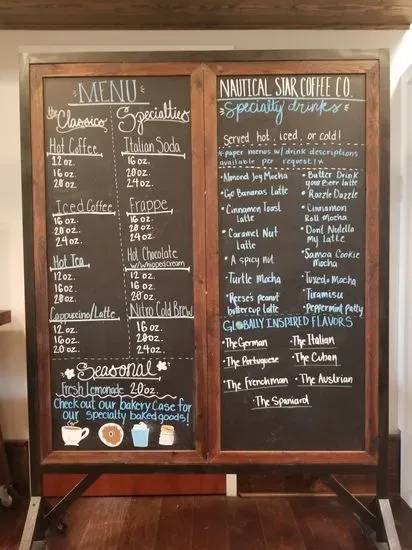 MENU
the Classics
Hot Coffee
12 oz.
16 oz.
20 oz.
Iced Coffee
16 oz.
20 oz.
24 oz.
Hot Tea
12 oz.
16 oz.
20 oz.
Cappuccino/Latte
12 oz.
16 oz.
20 oz.
Specialties
Italian Soda
16 oz.
20 oz.
24 oz.
Frappe
16 oz.
20 oz.
24 oz.
Hot Chocolate
w/whippedcream
12 oz.
16 oz.
20 oz.
Nitro Cold Brew
16 oz.
20 oz.
24 oz.
Seasonal
Fresh Lemonade 20oz.
Check out our bakery case for
our specialty baked goods!
NAUTICAL STAR COFFEE CO.
Specialty drinks
Served hot, iced, or cold!
*paper menus w/ drink descriptions
available per request!*
• Almond Joy Mocha
• Go Bananas Latte
• Cinnamon Toast
Latte
• Caramel Nut
Latte
• A spicy nut
• Turtle Mocha
• Reese's peanut
butter cup latte
• Butter Drink
your Beer latte
• Razzle Dazzle
• Cinnamon
Roll Mocha
• Don't Nutella
My latte
• Samoa Cookie
Mocha
• Tuxedo Mocha
• Tiramisu
• Peppermint Patty
GLOBALLY INSPIRED FLAVORS
• The German
• The Italian
• The Portuguese
• The Cuban
• The Frenchman
• The Austrian
• The Spaniard